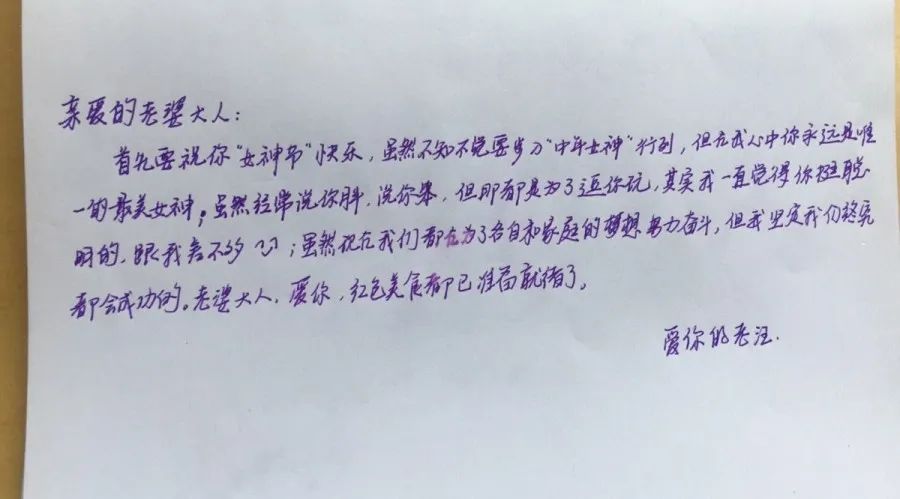 亲爱的老婆大人：
首先要祝你“女神节”快乐，虽然不知不觉要步入“中年女神”行列，但在我心中你永远是唯
一的最美女神。虽然经常说你胖，说你笨，但那都是为了逗你玩，其实我一直觉得你挺聪
明的，跟我差不多；虽然现在我们都在为了各自和家庭的梦想努力奋斗，但我坚定我们终究
都会成功的。老婆大人，爱你，红色美食都已准备就绪了。
爱你的老汪.